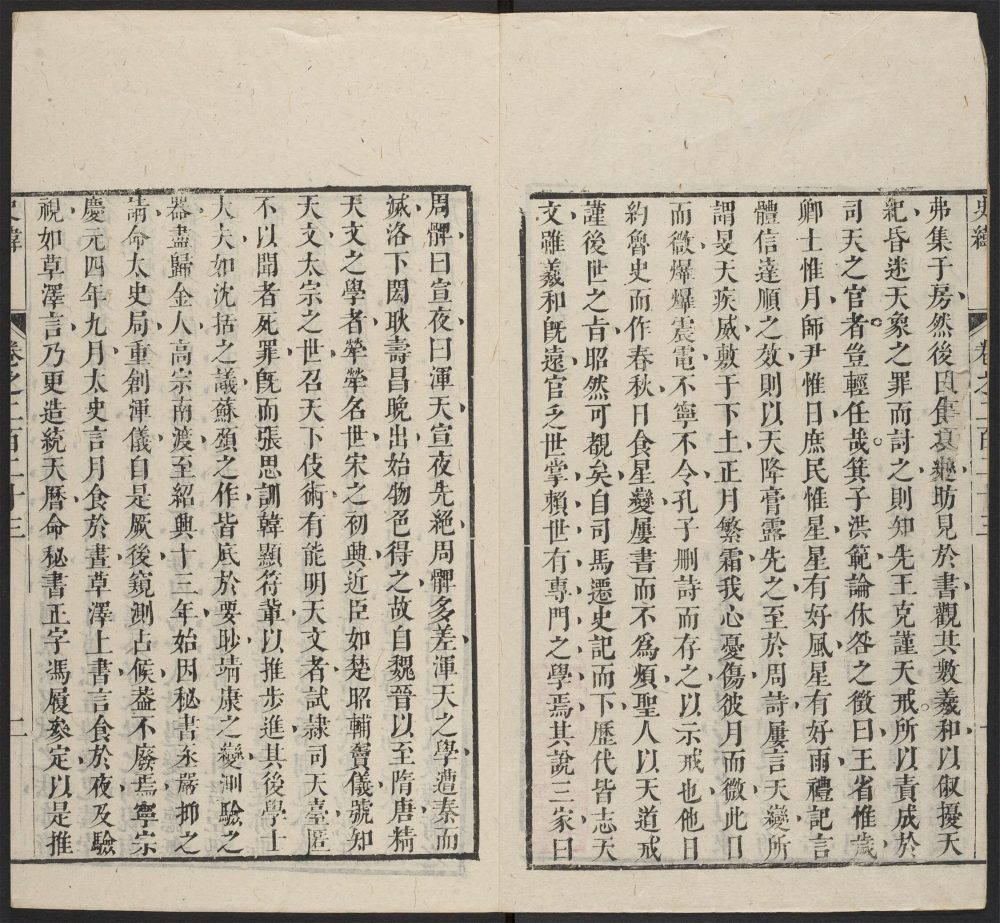 史緯 卷之二百二十三 一
弗集于房然後日食之變昉見於書觀其數羲和以俶擾天
紀昏迷天象之罪而討之則知先王克謹天戒所以責成於
司天之官者豈輕任哉箕子洪範論休咎之徵曰王省惟歲
卿士惟月師尹惟日庶民惟星星有好風星有好雨禮記言
體信達順之效則以天降膏露先之至於周詩屢言天變所
謂旻天疾威敷于下土正月繁霜我心憂傷彼月而微此日
而微爗爗震電不寧不令孔子刪詩而存之以示戒也他日
約魯史而作春秋日食星變屢書而不為煩聖人以天道戒
謹後世之旨昭然可覩矣自司馬遷史記而下歷代皆志天
文雖羲和旣遠官乏世掌賴世有專門之學焉其說三家曰
周髀曰宣夜曰渾天宣夜先絕周髀多差渾天之學遭秦而
滅洛下閎耿壽昌晚出始物色得之故自魏晉以至隋唐精
天文之學者犖犖名世宋之初興近臣如楚昭輔竇儀號知
天文太宗之世召天下伎術有能明天文者試隸司天臺匿
不以聞者死罪旣而張思訓韓顯符輩以推步進其後學士
大夫如沈括之議蘇頌之作皆底於要眇靖康之變測驗之
器盡歸金人高宗南渡至紹興十三年始因秘書丞嚴抑之
請命太史局重創渾儀自是厥後窺測占候葢不廢焉寧宗
慶元四年九月太史言月食於晝草澤上書言食於夜及驗
視如草澤言乃更造統天曆命秘書正字馮履參定以是推
史緯 卷之二百二十三 二